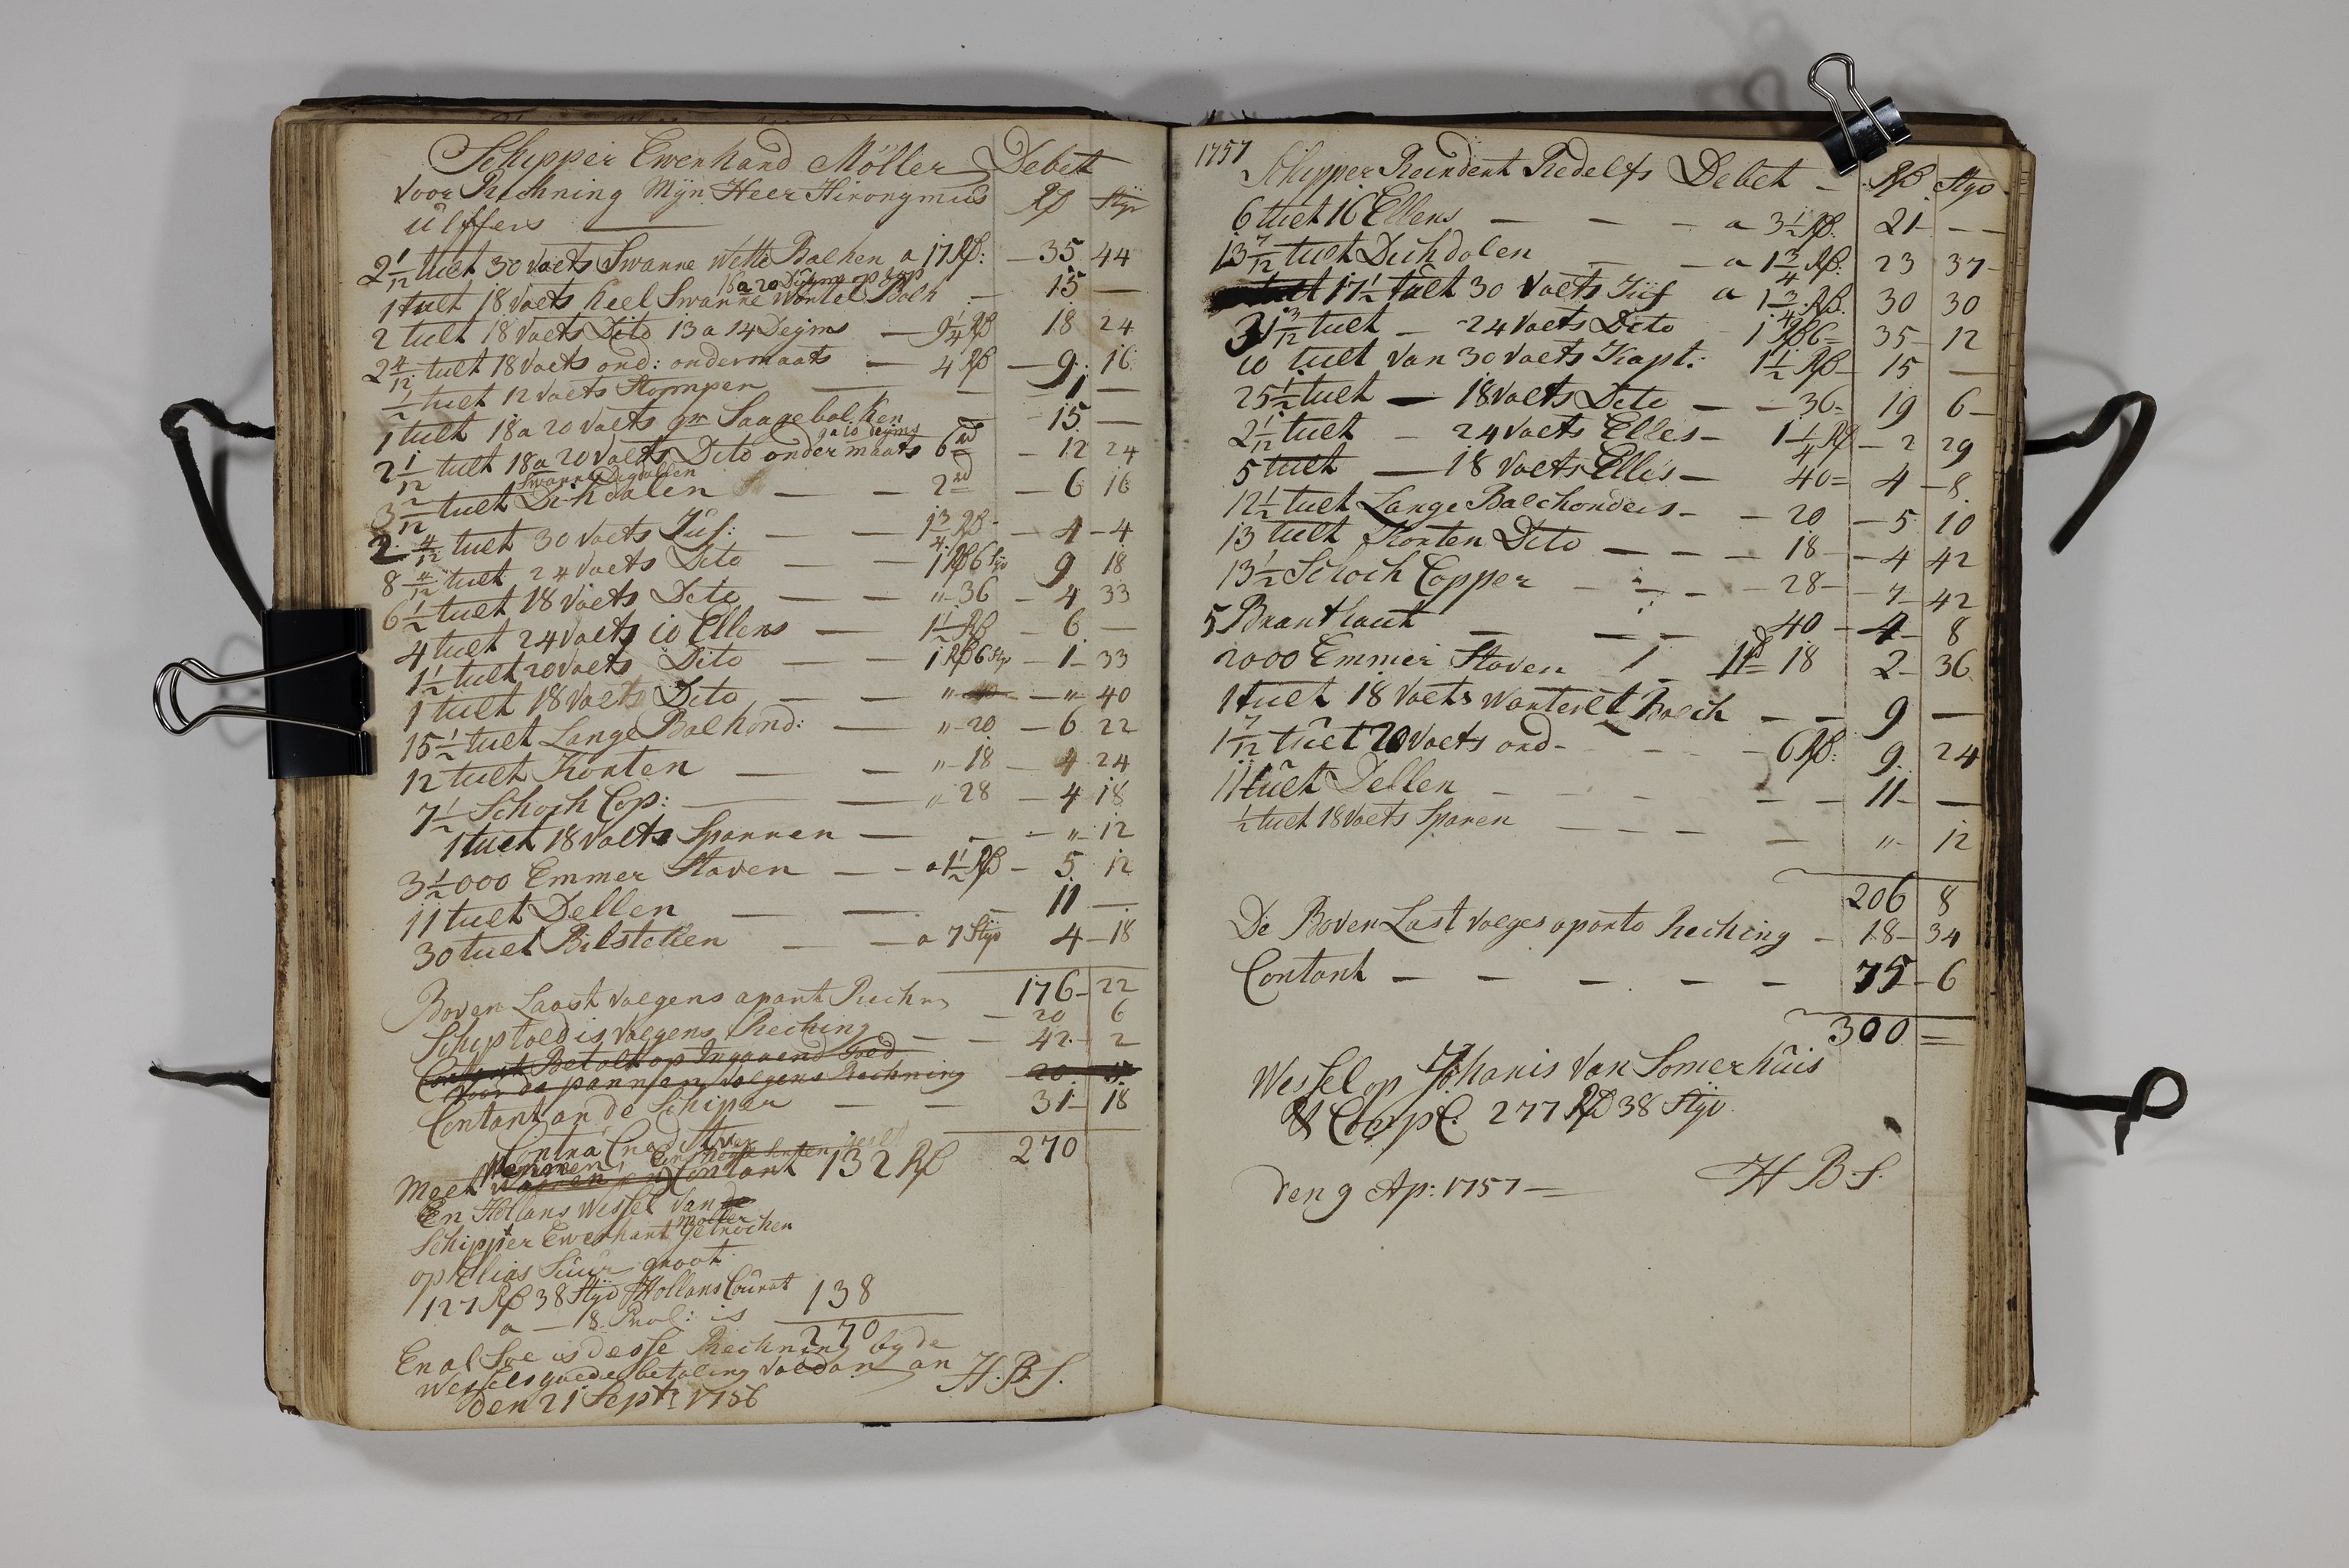 Schipper Ewerhand Möller Debet
Voor Rechning Mÿn Heer Hironÿmüs Rß Stÿv
ülffers
2 1/12 tuelt 30 Voets Swanne Wette Balken a 17 Rß: — 35 44
16 a 20 op top
1 tuelt 18 Voets heel Swanne Wontel Balk — 15 —
2 tuelt 18 Voets Dito 13 a 14 Deÿms — 9 1/4 Rß 18 24
2 4/12 tuelt 18 Voets ond: ondermaats — 4 Rß — 9 16
1/2 tuelt 12 Voets Stompen — — 1 —
1 tuelt 18 a 20 Voets gr Saagebalken — 15 —
9 a 10 deÿms
2 1/12 tuelt 18 a 20 Voets Dito ondermaats 6 — 12 24
Swanne Degdallen
3 2/12 tuelt Dikdalen — — 2 — 6 16
2 4/12 tuelt 30 Voets Jüf: — — 1 3/4 Rß — 4 — 4
8 4/12 tuelt 24 Voets Dito — — 1 Rß 6 Stÿv 9 18
6 1/2 tuelt 18 Voets Dito — — " 36 — 4 33
4 tuelt 24 Voets 10 Ellens — — 1 1/2 Rß — 6 —
1 1/2 tuelt 20 Voets Dito — — 1 Rß 6 Stv — 1 — 33
1 tuelt 18 Voets Dito — — " — " 40
15 1/2 tuelt Lange Balhond: — " 20 — 6 22
12 tuelt Konten — — " 18 — 4 24
7 1/2 Schock Cop: — — " 28 — 4 18
1 tuelt 18 Voets Sparren — — — " 12
3 1/2 000 Emmer Staven — — a 1 1/2 Rß — 5 12
11 tuelt Dellen — — — 11 —
30 tuelt Bilstecken — — a 7 Stÿv 4 — 18
176 — 22
Boven Laast volgens apart Rechn — 20 6
Schip told is Volgens Reching — — 42 — 2
Contant Betalt op Ingaaend
Voor de pannen Volgens Rechning 20
Contant an de Schiper — — 31 — 18
Contra Credit
270
Meet Contant 132 Rß
En Hollans Wessel Van
möller
Schipper Ewerhant getrocken
op Elias Süür groot
127 Rß 38 Stÿv Hollans Coürat
a — 18 Proc: is 138
270
En al Soe is desse Rechning by de
Wessels goede betaling voldan an H. B. S.
den 21 Sept: 1756
1757
Schipper Reindert Redelfs Debet — Rß Stÿv
6 tuelt 16 Ellens — — — a 3 1/2 Rß 21 — —
13 7/12 tuelt Dickdalen — a 1 3/4 Rß: 23 37
17 1/2 tuelt 30 Voets Jüf a 1 3/4 Rß. 30 30
31 3/12 tuelt — 24 Voets Dito — 1 Rß 6 = 35 — 12
10 tuelt van 30 Voets Kapt: 1 1/2 Rß — 15 —
25 1/2 tuelt — 18 Voets Dito — — 36 = 19 6 —
2 1/12 tuelt — 24 Voets Elles — 1 1/4 Rß — 2 29
5 tuelt — 18 Voets Ellis — 40 = 4 — 8
12 1/2 tuelt Lange Balckonders — — 20 — 5 10
13 tuelt Konten Dito — — — 18 — — 4 42
13 1/2 Schock Copper — — — 28 — — 7 — 42
5 Branthout — — — 40 — 4 — 8
2000 Emmer Staven 18 2 — 36
1 tuelt 18 Voets Wontelt Balck — — 9 —
1 7/12 tüelt 20 Voets ond — — 6 Rß: 9 24
11 tüelt Dellen — — — — 11 — —
1/2 tuelt 18 Voets Sparen — — — " 12
206 8
De Boven Last volges aparto Reching — 18 — 34
Contant — — — — — 75 — 6
300 =
Wessel op Johanis Van Somerhüis
& Comp C. 277 Rß 38 Stÿv
den 9 Ap: 1757 — H B S.